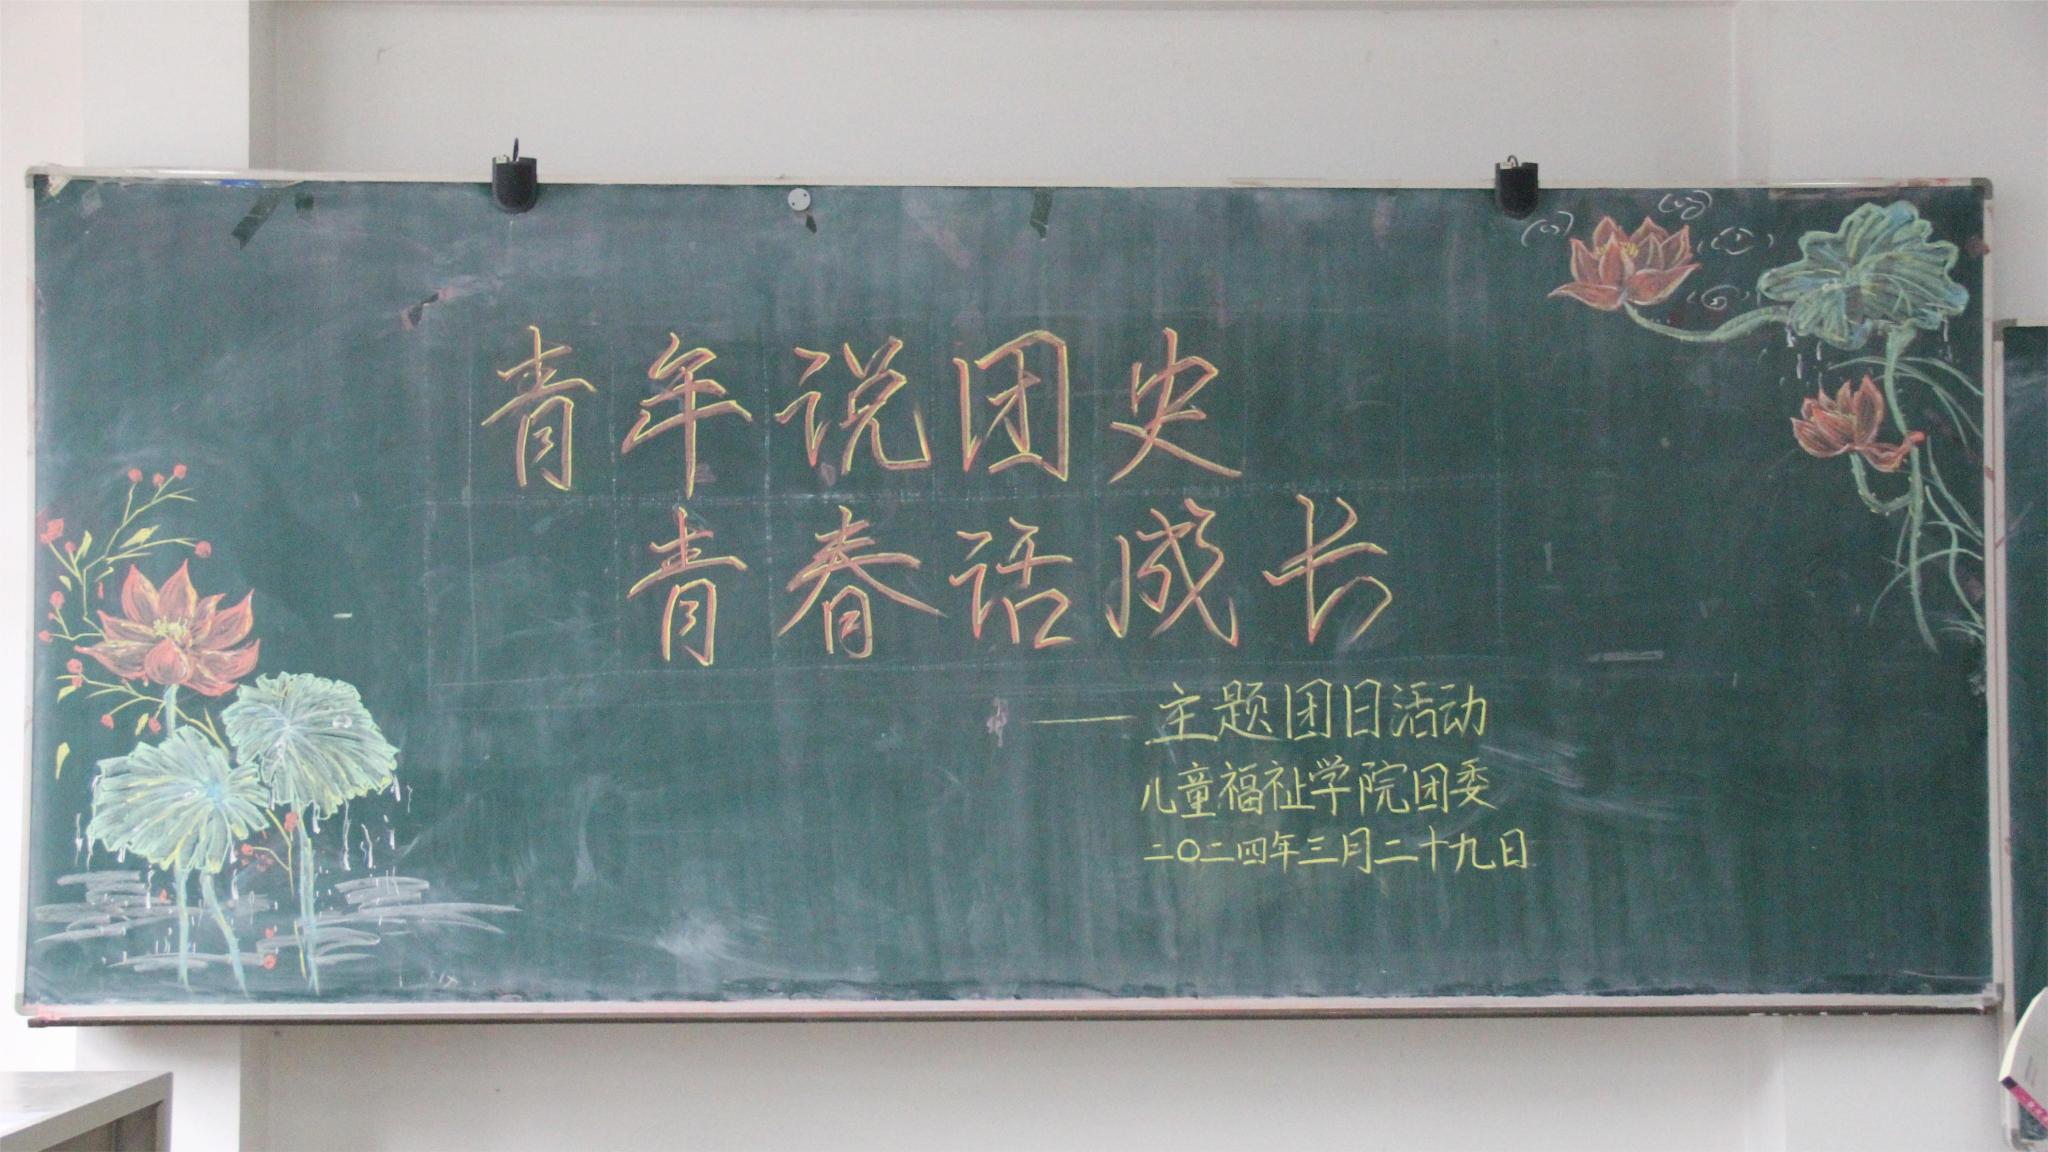 青年说团史
青春话成长
——主题团日活动
儿童福祉学院团委
二〇二四年三月二十九日